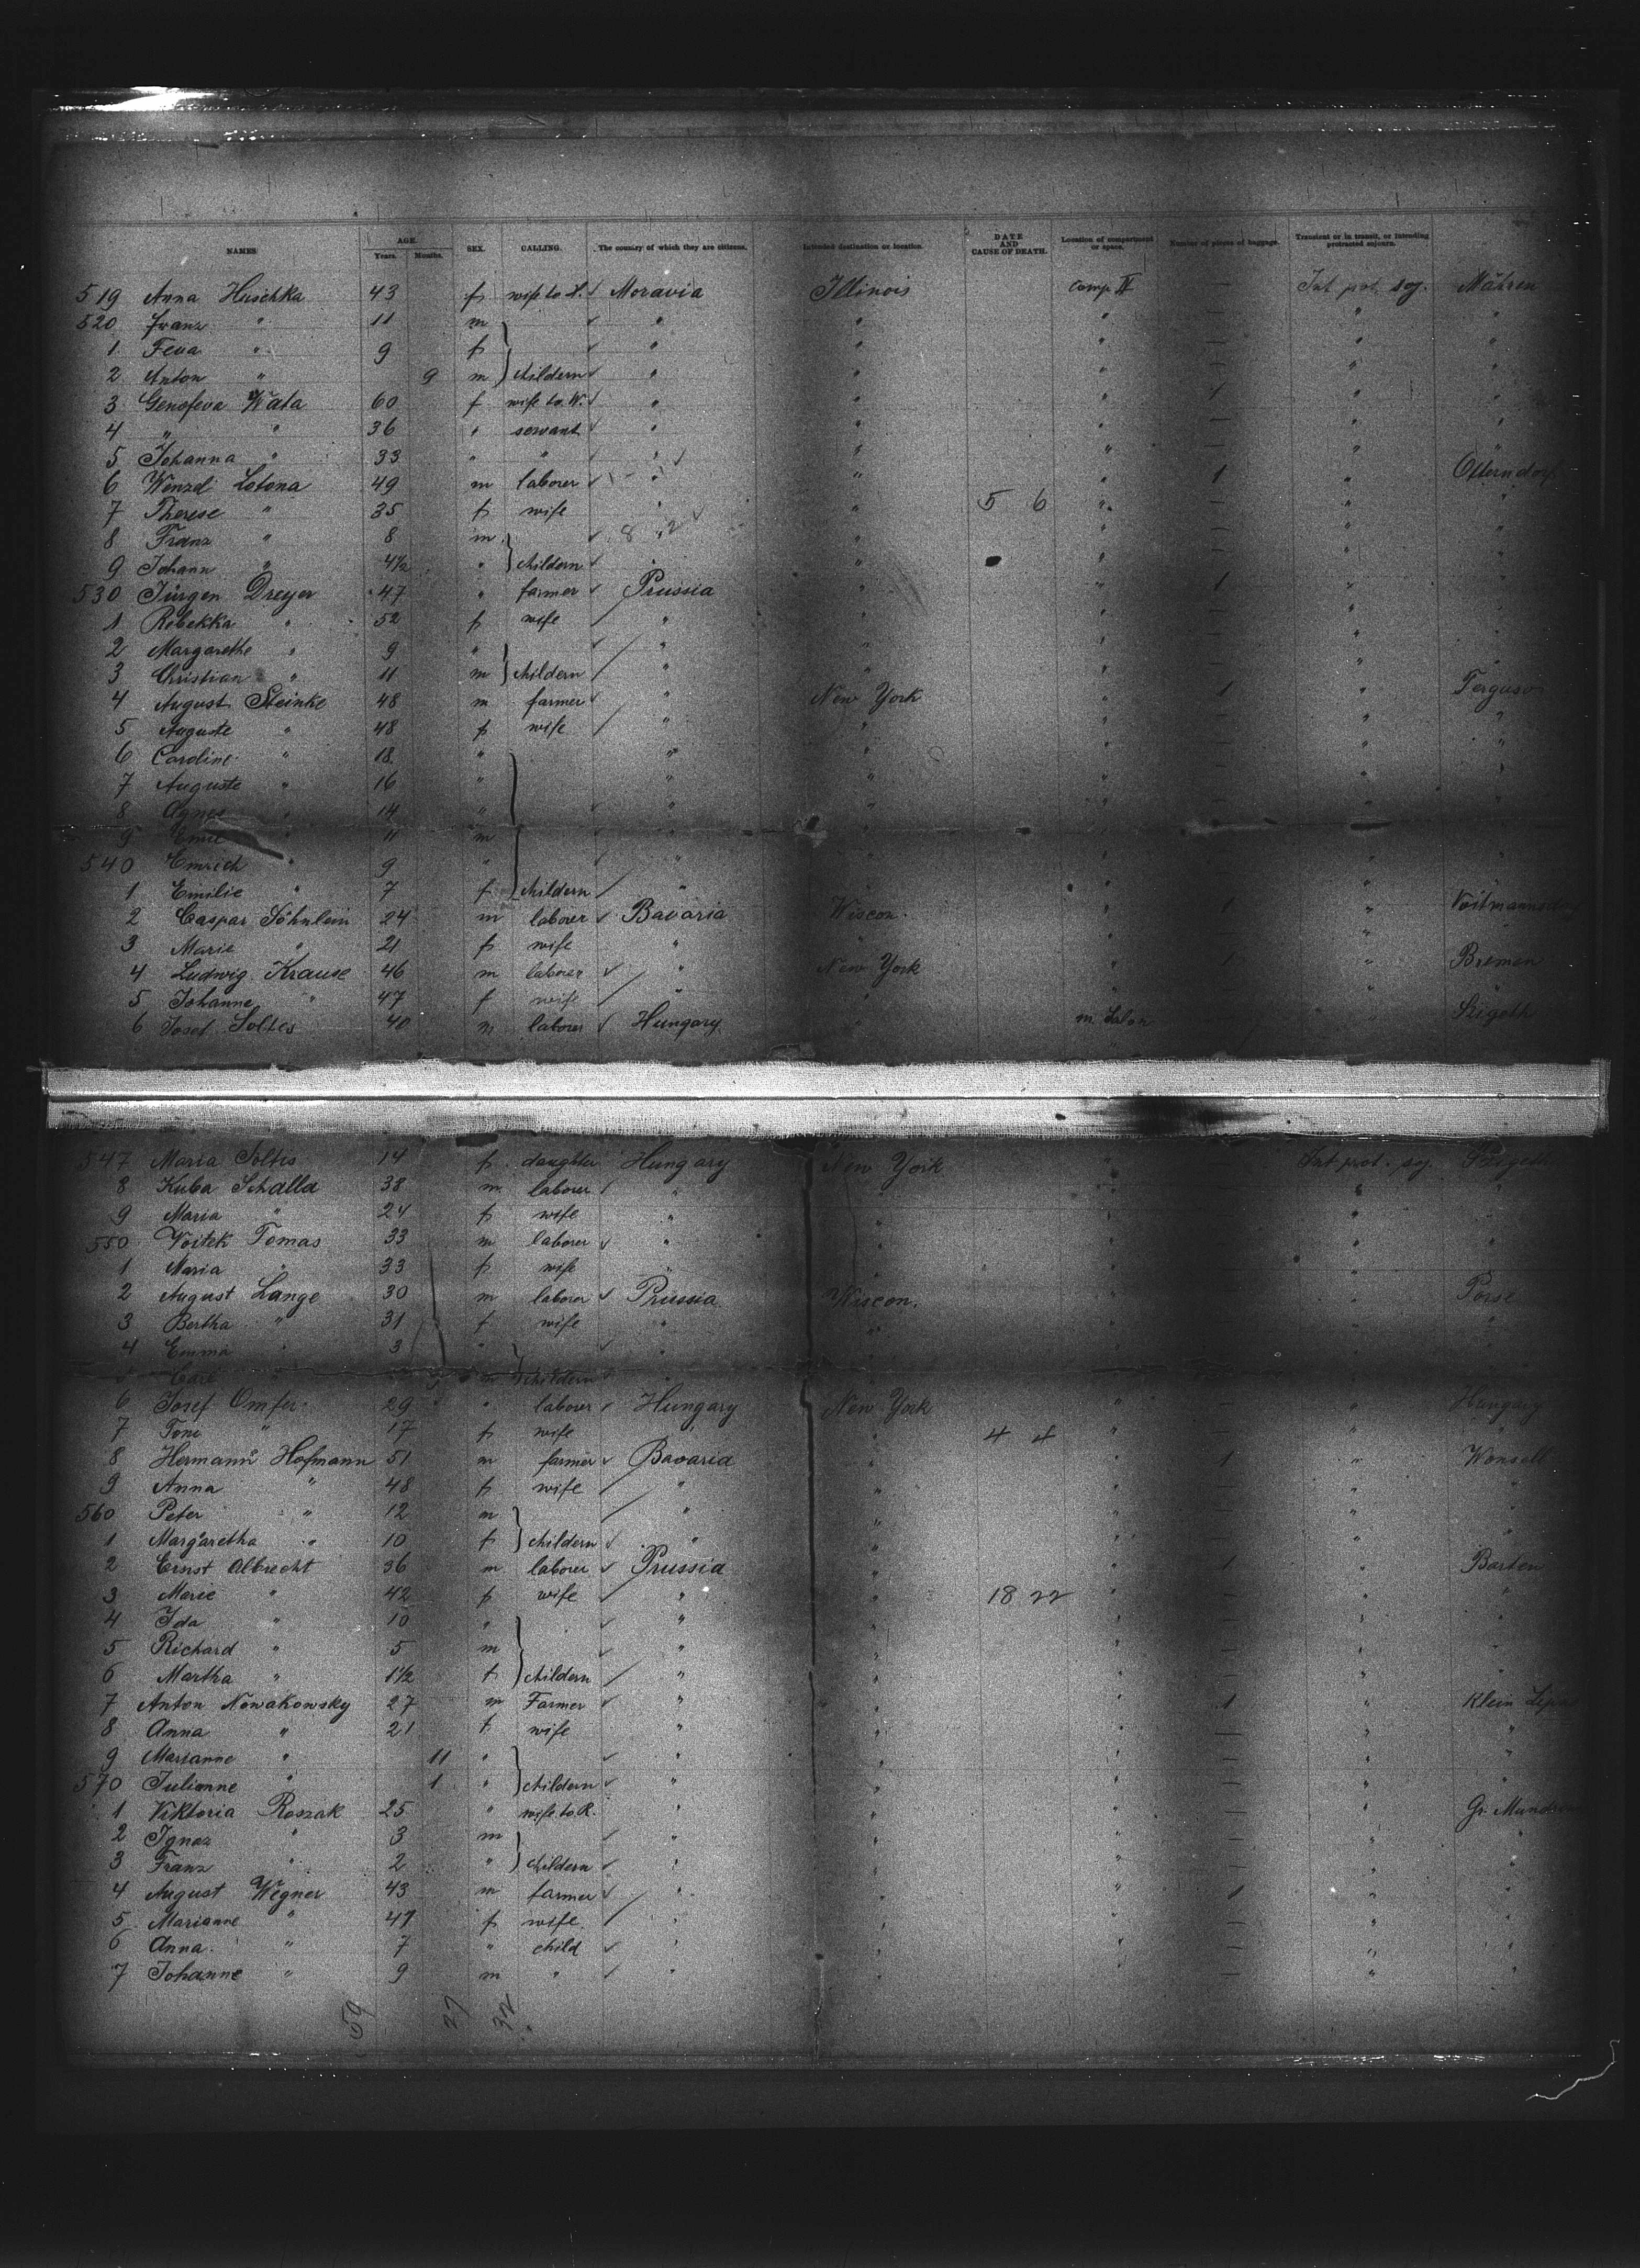 NAMES AGE. SEX. CALLING. The country of which they are citizens. Intended destination or location. DATE AND CAUSE OF DEATH. Location of compartment or space. Number of pieces of baggage. Transient or in transit, or intending protracted sojourn.
Years. Months.
519 Anna Huschka 43 f wife to H. Moravia Illinois Comp II — Int prot. soj. Mähren
520 Franz " 11 m " " " — " "
1 Feva " 9 f " " " — " "
2 Anton " 9 m childern " " " — " "
3 Genofeva Wata 60 f wife to W. " " " 1 " "
4 " " 36 " servant " " " — " "
5 Johanna " 33 " " " " " — " "
6 Wenzel Lotona 49 m laborer " " " 1 " Otterndorf
7 Therese " 35 f wife " " 5 6 " — " "
8 Franz " 8 m 8 " 2 " " — " "
9 Johann " 4½ " childern " " " — " "
530 Jürgen Dreyer 47 " farmer Prussia " " 1 " "
1 Rebekka " 52 f wife " " " — " "
2 Margarethe " 9 " " " " — " "
3 Christian " 11 m childern " " " — " "
4 August Steinke 48 m farmer " New York " 1 " Ferguson
5 Auguste " 48 f wife " " " — " "
6 Caroline " 18 " " " " — " "
7 Auguste " 16 " " " " — " "
8 Agnes " 14 " " " " — " "
9 Emil " 11 m " "
540 Emrich " 9 " " " " — " "
1 Emilie " 7 f childern " " " — " "
2 Caspar Söhnlein 24 m laborer Bavaria Wiscon. " 1 "
3 Marie " 21 f wife " " " — " "
4 Ludwig Krause 46 m laborer " New York " 1 " Bremen
5 Johanne " 47 f wife " " " — " "
6 Josef Soltes 40 m laborer Hungary " m. Salon — " Szigeth
547 Maria Soltis 14 f daughter Hungary New York " — Int prot. soj. Szigeth
8 Kuba Schalla 38 m laborer " " " — " "
9 Maria " 24 f wife " " " — " "
550 Voitek Tomas 33 m laborer " " " — " "
1 Maria " 33 f wife " " " — " "
2 August Lange 30 m laborer Prussia Wiscon. " — "
3 Bertha " 31 f wife " " " — " "
4 Emma " 3 " " " " — " "
Carl " m childern
6 Josef Omfer 29 " laborer Hungary New York " — " Hungary
7 Toni " 17 f wife " " 4 4 " — " "
8 Hermann Hofmann 51 m farmer Bavaria " " 1 " Wonsell
9 Anna " 48 f wife " " " — " "
560 Peter " 12 m " " " — " "
1 Margaretha " 10 f childern " " " — " "
2 Ernst Albrecht 36 m laborer Prussia " " 1 " Barten
3 Marie " 42 f wife " " 18 22 " — " "
4 Ida " 10 " " " " — " "
5 Richard " 5 m " " " — " "
6 Martha " 1½ f childern " " " — " "
7 Anton Nowakowsky 27 m Farmer " " " 1 " Klein
8 Anna " 21 f wife " " " — " "
9 Marianne " 11 " " " " — " "
570 Julianne " 1 " childern " " " — " "
1 Viktoria Roszak 25 " wife to R. " " " — " Gr.
2 Ignaz " 3 m " " " — " "
3 Franz " 2 " childern " " " — " "
4 August Wegner 43 m farmer " " " 1 " "
5 Marianne " 47 f wife " " " — " "
6 Anna " 7 " child " " " — " "
7 Johanne " 9 m " " " " — " "
59 27 32